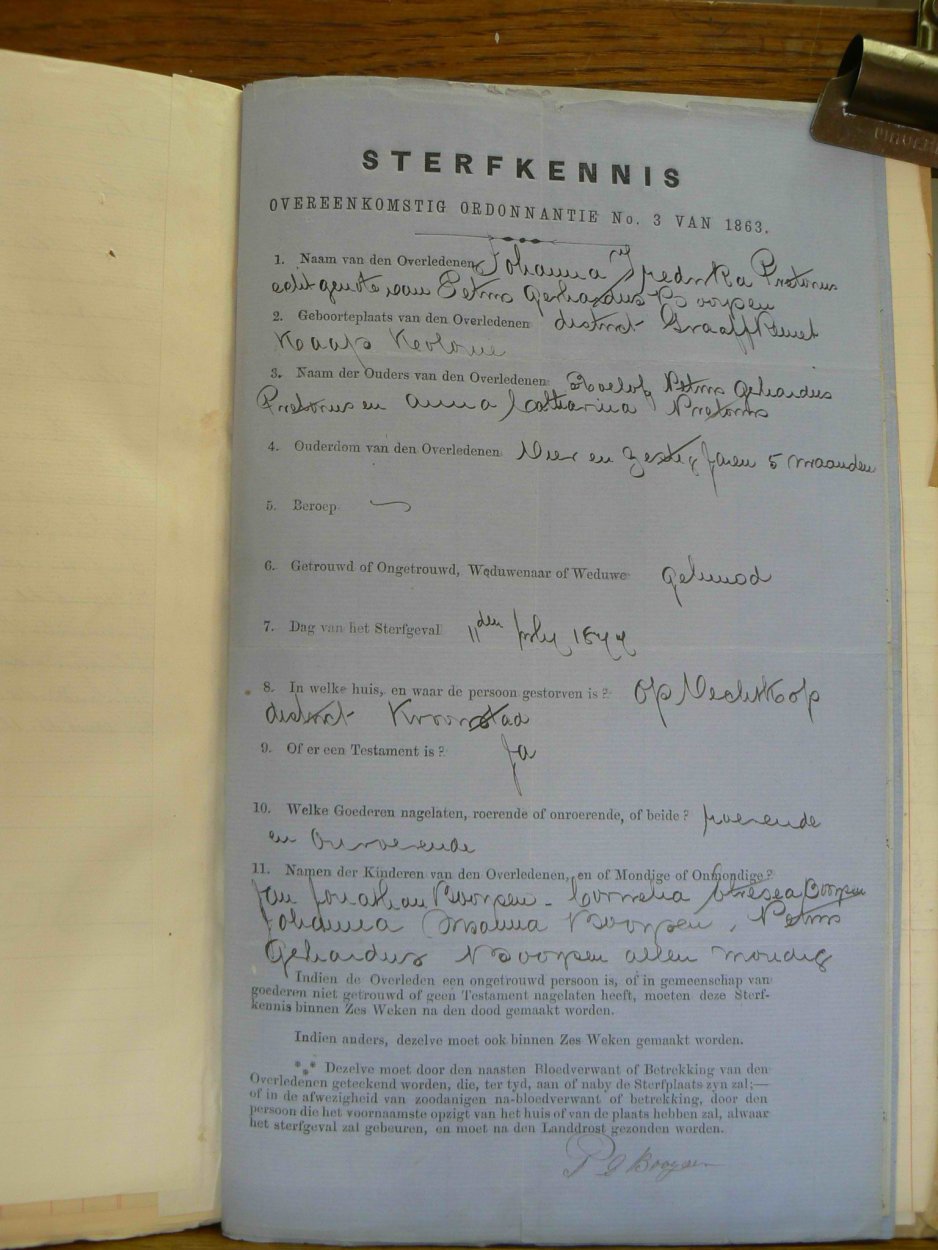 STERFKENNIS
OVEREENKOMSTIG ORDONNANTIE No. 3 VAN 1863.
1. Naam van den Overledenen Johanna Fredrika Pretorius
echtgenote van Petrus Gerhardus Booysen
2. Geboorteplaats van den Overledenen district Graaff Reinet
Kaaps Kolonie
3. Naam der Ouders van den Overledenen Roelof Petrus Gerhardus
Pretorius en Anna Catharina Pretorius
4. Ouderdom van den Overledenen Vier en Zestig Jaren 5 maanden
5. Beroep
6. Getrouwd of Ongetrouwd, Weduwenaar of Weduwe
7. Dag van het Sterfgeval 11den July 1877
8. In welke huis, en waar de persoon gestorven is? Op Vechtkop
district Kroonstad
9. Of er een Testament is? Ja
10. Welke Goederen nagelaten, roerende of onroerende, of beide? roerende
en onroerende
11. Namen der Kinderen van den Overledenen, en of Mondige of Onmondige?
Jan Jonathan Booysen - Cornelia Booysen
Johanna Booysen, Petrus
Gerhardus Booysen allen mondig
Indien de Overleden een ongetrouwd persoon is, of in gemeenschap van
goederen niet getrouwd of geen Testament nagelaten heeft, moeten deze Sterf-
kennis binnen Zes Weken na den dood gemaakt worden.
Indien anders, dezelve moet ook binnen Zes Weken gemaakt worden.
*** Dezelve moet door den naasten Bloedverwant of Betrekking van den
Overledenen geteekend worden, die, ter tyd, aan of naby de Sterfplaats zyn zal;—
of in de afwezigheid van zoodanigen na-bloedverwant of betrekking, door den
persoon die het voornaamste opzigt van het huis of van de plaats hebben zal, alwaar
het sterfgeval zal gebeuren, en moet na den Landdrost gezonden worden.
P G Booysen